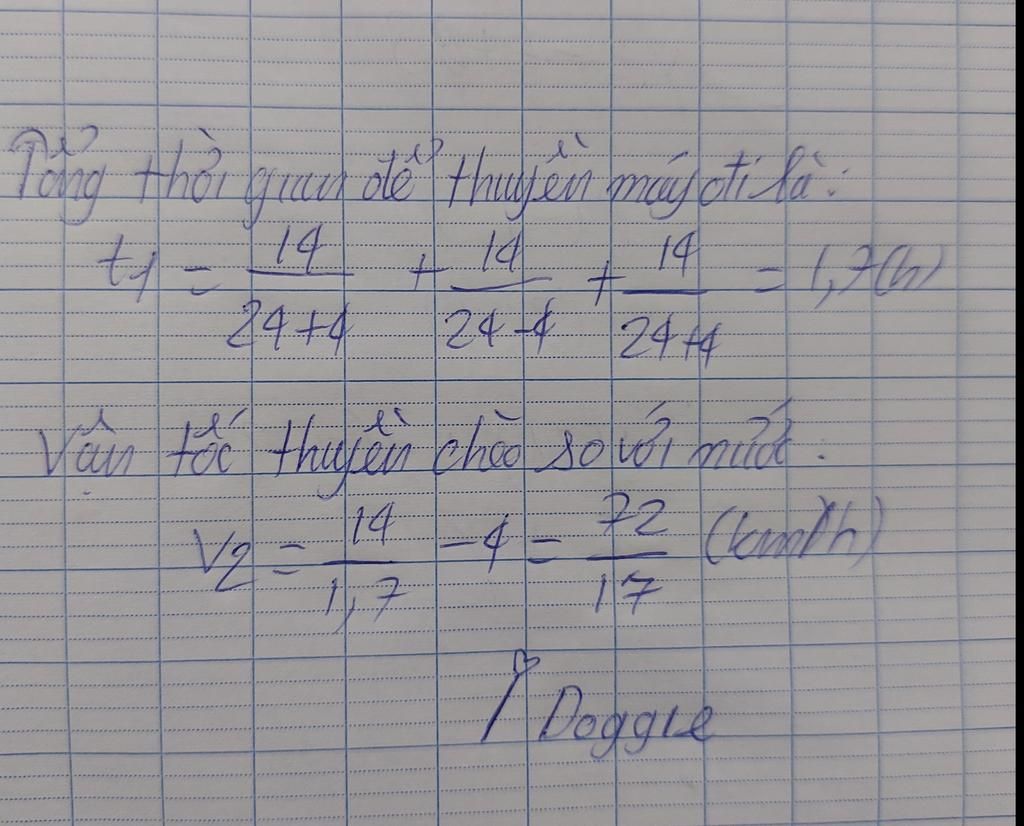 Tổng thời gian để thuyền máy đi là:
t1 = 14/(24+4) + 14/(24-4) + 14/(24+4) = 1,7(h)
Vận tốc thuyền chèo so với nước.
V2 = 14/1,7 - 4 = 72/17 (km/h)
Doggie